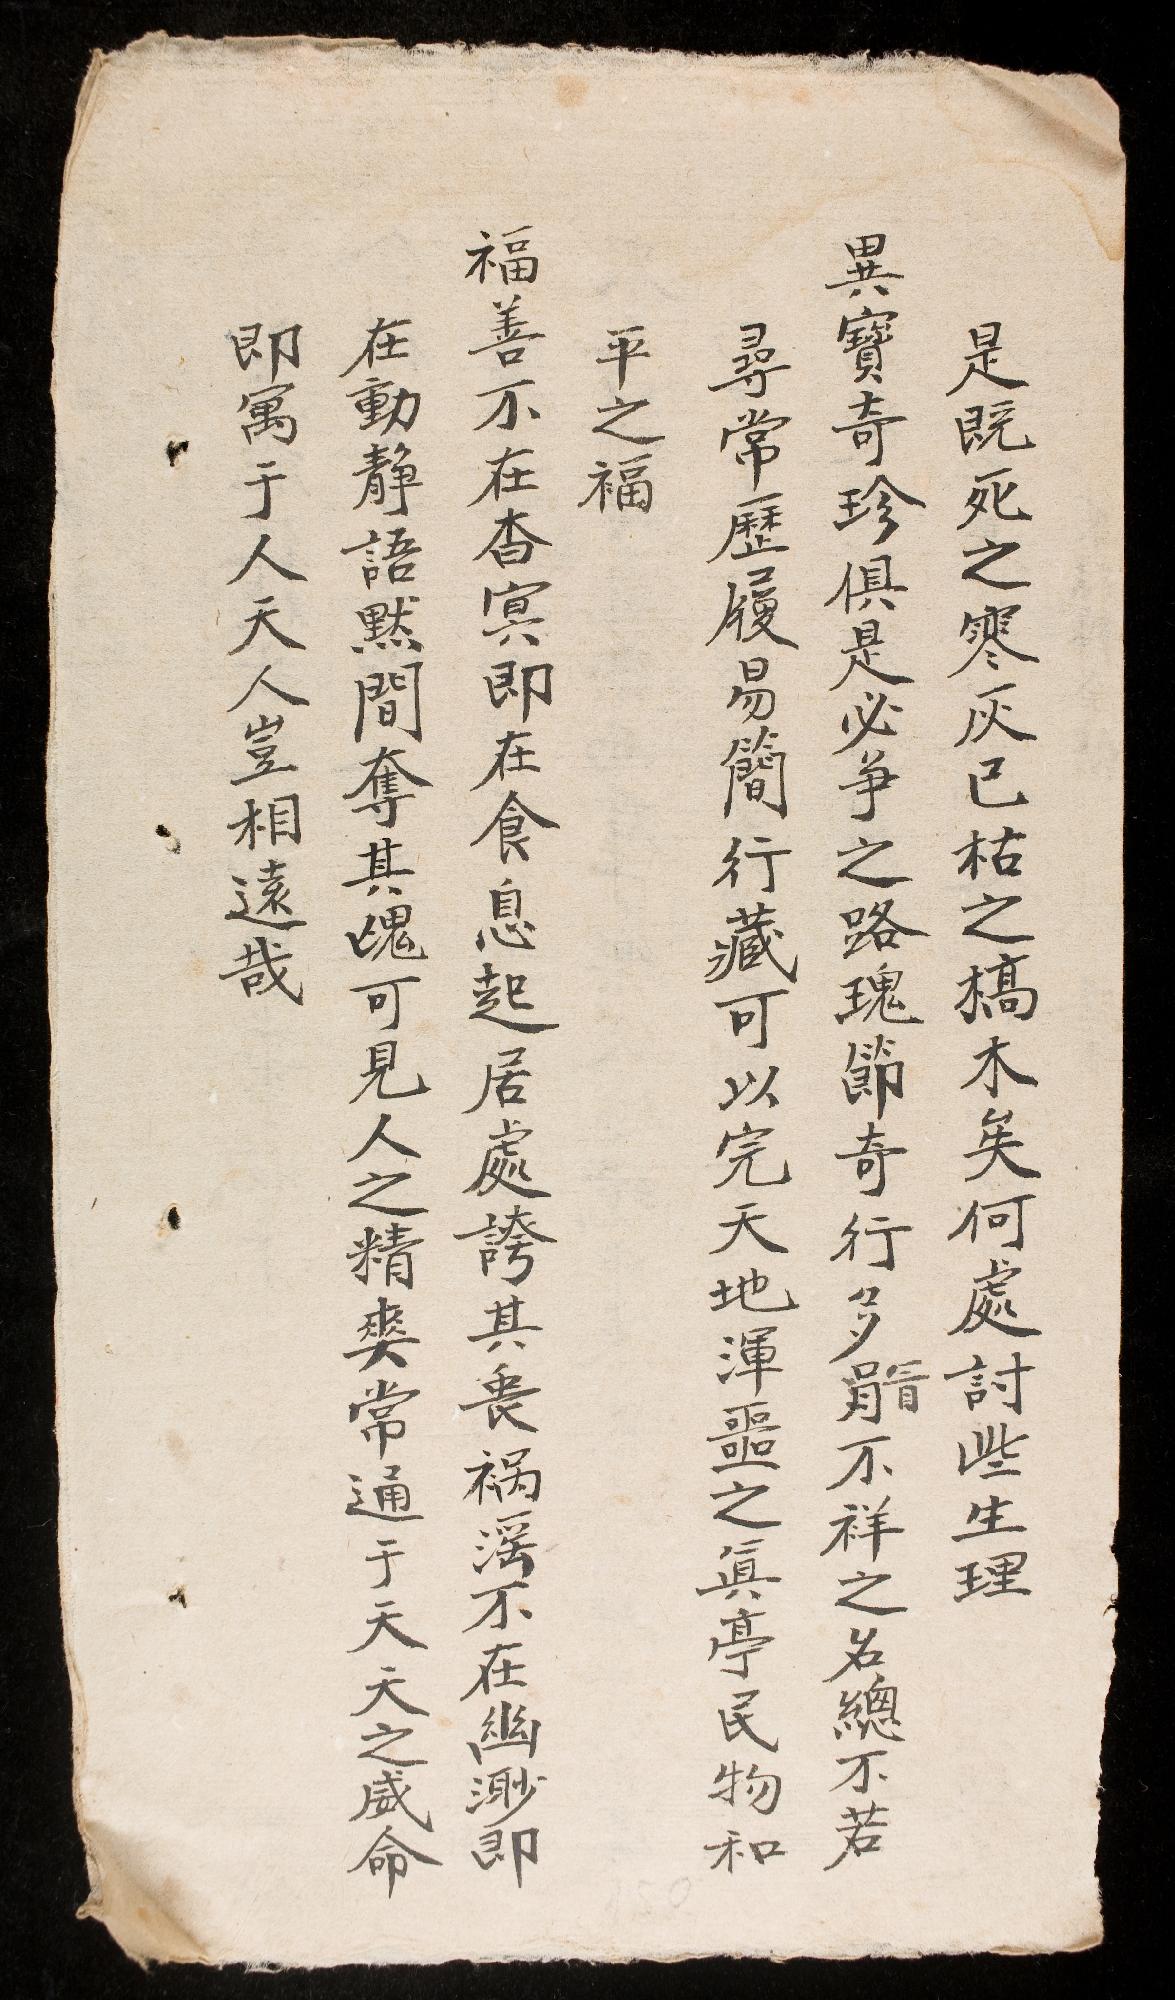 是既死之寒灰已枯之槁木矣何處討些生理
異寶奇珍俱是必爭之路瑰節奇行多冐不祥之名總不若
尋常歷履易簡行藏可以完天地渾噩之眞享民物和
平之福
福善不在杳冥即在食息起居處誇其衷禍淫不在幽渺即
在動靜語默間奪其魄可見人之精爽常通于天天之威命
即寓于人天人豈相遠哉